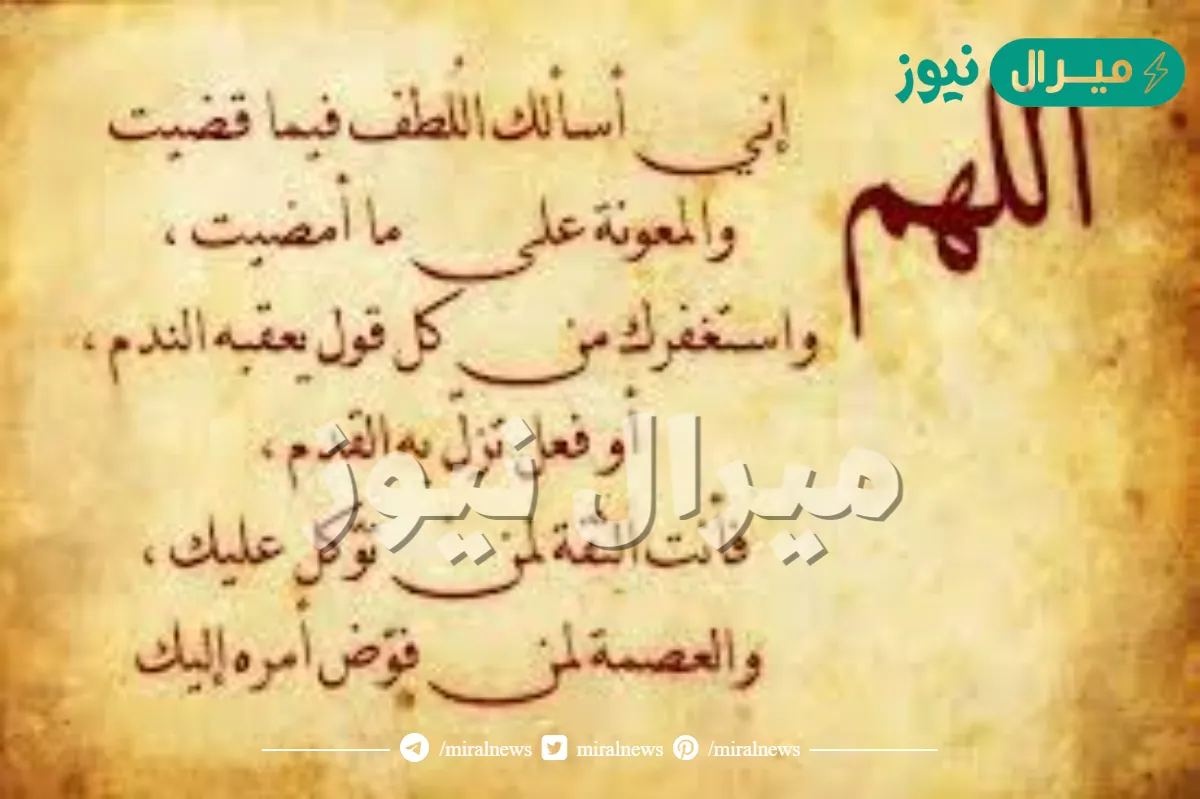 ميرال نيوز
اللهم
إني أسألك اللُطف فيما قضيت
والمعونة على ما أمضيت ،
واستغفرك من كل قول يعقبه الندم ،
أو فعل تزلّ به القدم ،
ميرال نيوز
فأنت الثقة لمن توّكل عليك ،
والعصمة لمن فوّض أمره إليك
/miralnews miralnews /miralnews